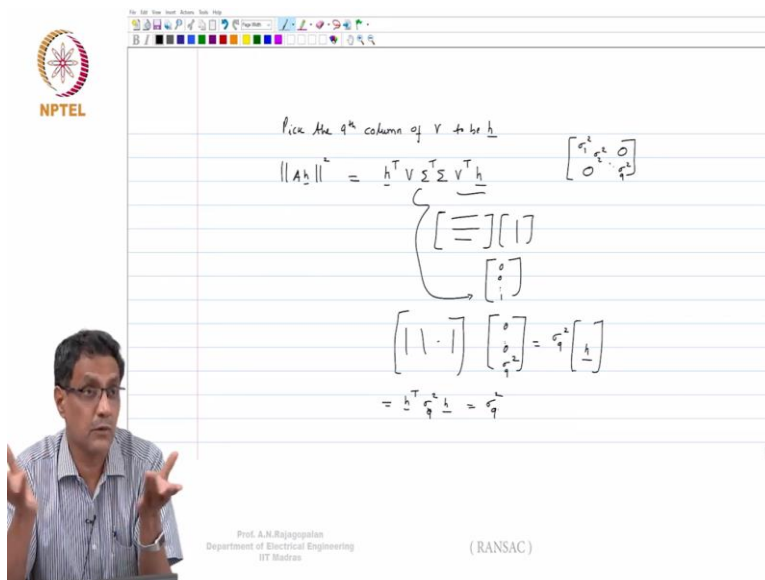 File Edit View Insert Actions Tools Help
Page Width
B I
NPTEL
Pick the 9th column of V to be h
||Ah||² = hᵀ V Σᵀ Σ Vᵀ h
[σ₁² σ₂² 0 0 ⋱ σ₉²]
[≡] [|]
[0 0 : 1]
[| | · |] [0 : 0 σ₉²] = σ₉² [h]
= hᵀ σ₉² h = σ₉²
Prof. A.N.Rajagopalan
Department of Electrical Engineering
IIT Madras
( RANSAC )